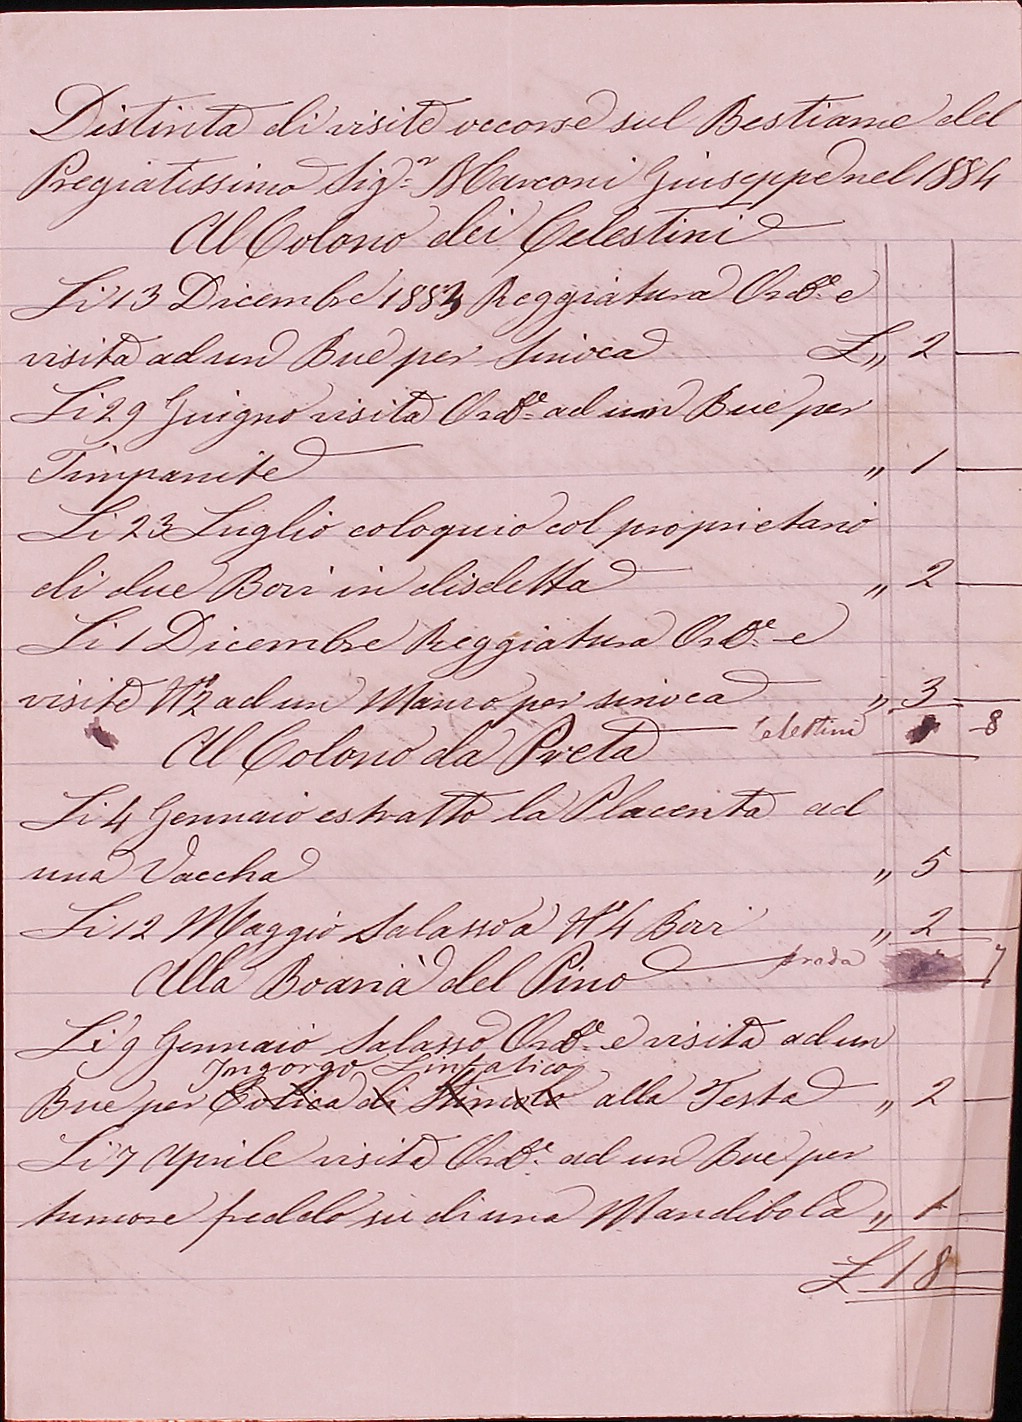 Distinta di visite occorse sul Bestiame del
Pregiatissimo Sigr Marconi Giuseppe nel 1884
Al Colono dei Celestini
Li 13 Dicembre 1883 Reggiatura Orde e
visita ad un Bue per Sinoca £ „ 2 —
Li 29 Giugno visita Orde ad un Bue per
Timpanite „ 1 —
Li 23 Luglio coloquio col proprietario
di due Bovi in disdetta „ 2 —
Li 1 Dicembre Reggiatura Orde e
visite No 2 ad un Manzo per sinoca „ 3 —
Celestini 8
Al Colono da Preta
Li 4 Gennaio estratto la Placenta ad
una Vaccha „ 5 —
Li 12 Maggio Salasso a No 4 Bovi „ 2 —
Prada 7
Alla Boarià del Pino
Li 9 Gennaio Salasso Orde e visita ad un
Ingorgo Linfatico
Bue per Colica di Stincolo alla Testa „ 2 —
Li 7 Aprile visita Orde ad un Bue per
tumore freddo su di una Mandibola „ 1 —
£ 18 —